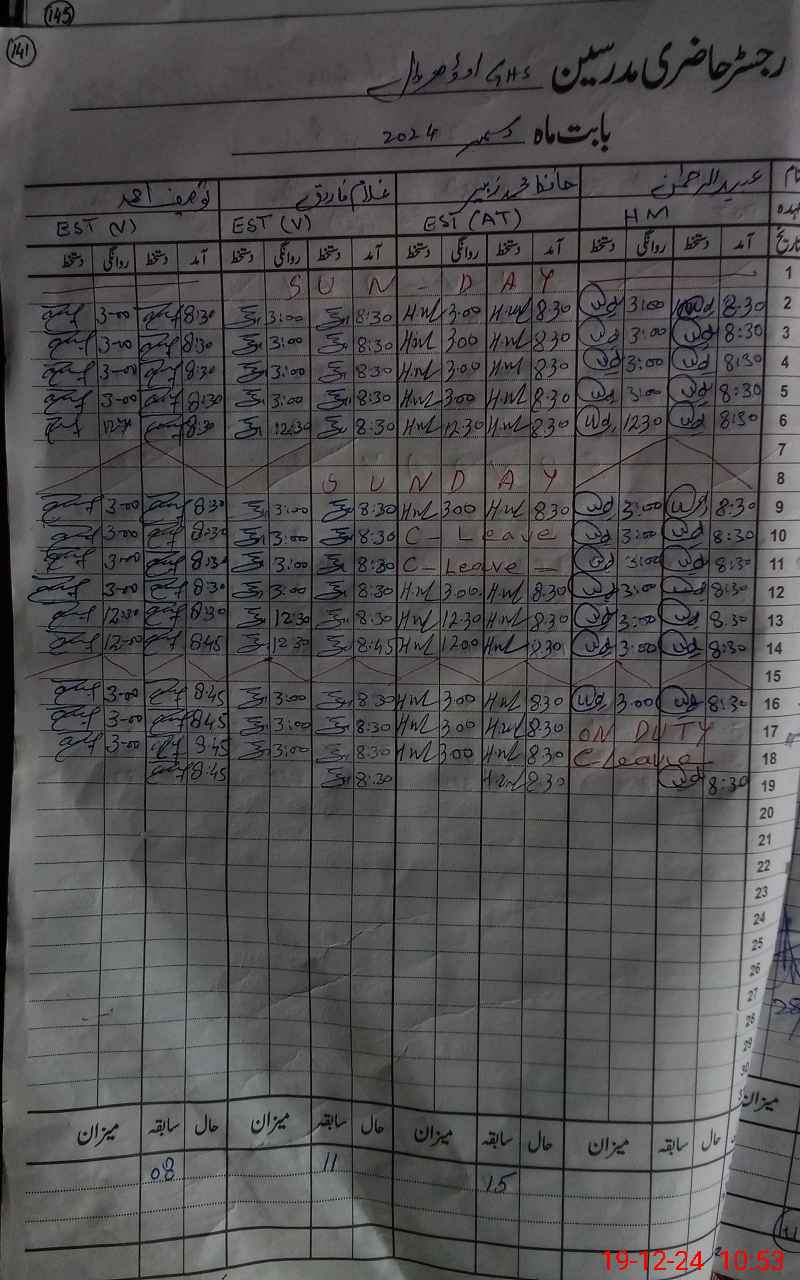 145
141
رجسٹر حاضری مدرسین GHS
بابت ماہ دسمبر 2024
نام عبیدالرحمٰن حافظ محمد زبیر غلام فاروق توصیف احمد
عہدہ HM EST (AT) EST (V) EST (V)
تاریخ آمد دستخط روانگی دستخط آمد دستخط روانگی دستخط آمد دستخط روانگی دستخط آمد دستخط روانگی دستخط
1 SUN - DAY
2 8:30 3:00 8:30 3:00 8:30 3:00 8:30 3-00
3 8:30 3:00 8:30 3:00 8:30 3:00 8:30 3-00
4 8:30 3:00 8:30 3:00 8:30 3:00 8:30 3-00
5 8:30 3:00 8:30 3:00 8:30 3:00 8:30 3-00
6 8:30 12:30 8:30 12:30 8:30 12:30 8:30
7
8 SUNDAY
9 8:30 3:00 8:30 3:00 8:30 3:00 8:30 3-00
10 8:30 3:00 C - Leave 8:30 3:00 8:30 3-00
11 8:30 3:00 C - Leave 8:30 3:00 8:30 3-00
12 8:30 3:00 8:30 3:00 8:30 3:00 8:30 3-00
13 8:30 3:00 8:30 12:30 8:30 12:30 8:30 12:30
14 8:30 3:00 8:30 1200 8:45 12:30 8:45 12-00
15
16 8:30 3:00 8:30 3:00 8:30 3:00 8:45 3-00
17 ON DUTY 8:30 3:00 8:30 3:00 8:45 3-00
18 C-Leave 8:30 3:00 8:30 3:00 8:45 3-00
19 8:30 8:30 8:30 8:45
20
21
22
23
24
25
26
27
28
29
30
حال سابقہ میزان حال سابقہ میزان حال سابقہ میزان حال سابقہ میزان
15 11 08
میزان
28
19-12-24 10:53